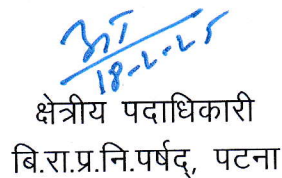 18-2-25
क्षेत्रीय पदाधिकारी
बि.रा.प्र.नि.पर्षद्, पटना